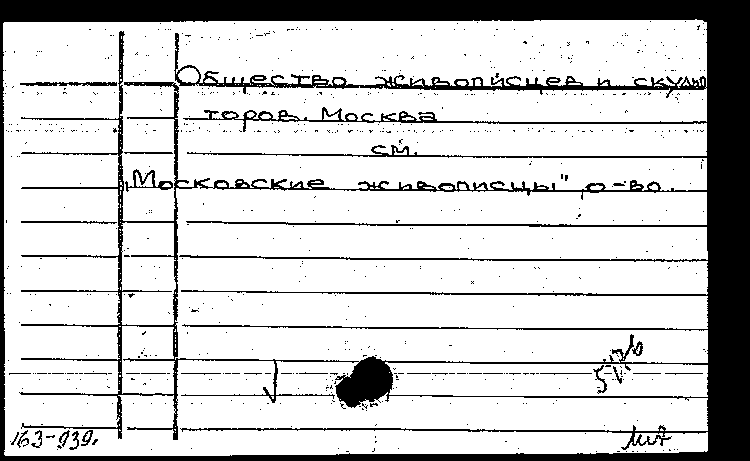 Общество живописцев и скульп
торов. Москва
см.
„Московские живописцы", о-во.
163-939.